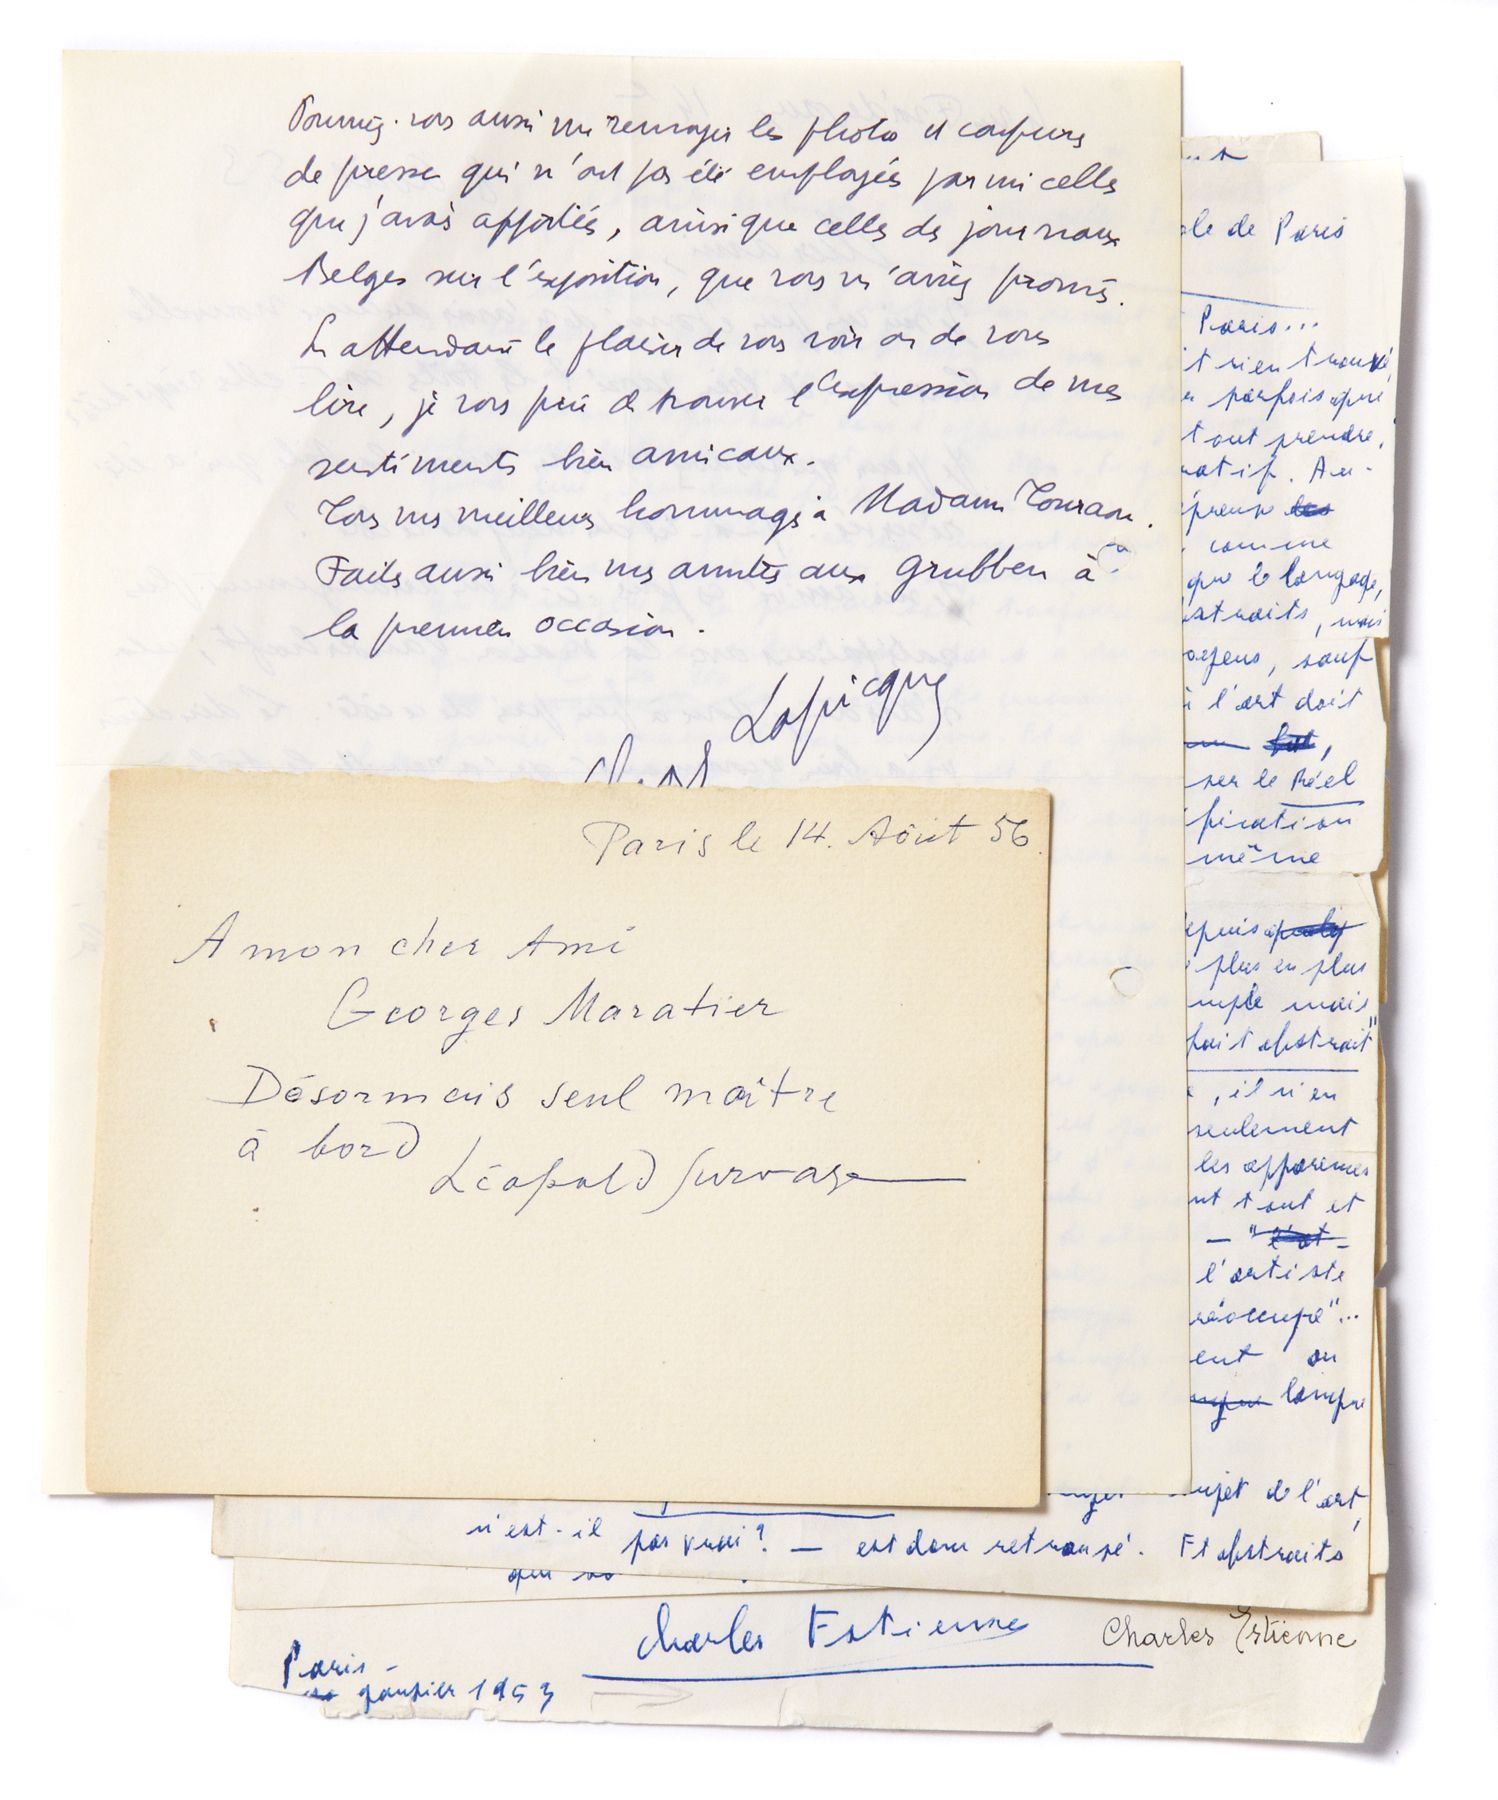 Pourriez-vous aussi me renvoyer les photos et coupures
de presse qui n'ont pas été employés parmi celles
que j'avais apportées, ainsi que celles des journaux
Belges sur l'exposition, que vous m'aviez promis.
En attendant le plaisir de vous voir ou de vous
lire, je vous prie de trouver l'expression de mes
sentiments bien amicaux.
Tous mes meilleurs hommages à Madame
Faites aussi bien mes amitiés aux Grubben à
la première occasion.
Lapicque
Paris le 14. Aôut 56.
A mon cher Ami
Georges Maratier
Désormais seul maître
à bord
Léopold Survage
ole de Paris
Paris...
t rien trouvé,
parfois que
tout prendre,
ratif. Au-
les
comme
que le langage,
bstraits, mais
oyens, sauf
l'art doit
but,
ser le Réel
fication
même
epuis
plus en plus
mple mais
fait abstrait"
, il n'en
seulement
les apparences
nt tout et
— "l'art –
l'artiste
réoccupe"...
ent ou
langue
ujet de l'art,
n'est-il pas vrai? — est donc retrouvé. Et abstraits
Charles Estienne
Charles Estienne
Paris –
janvier 1953